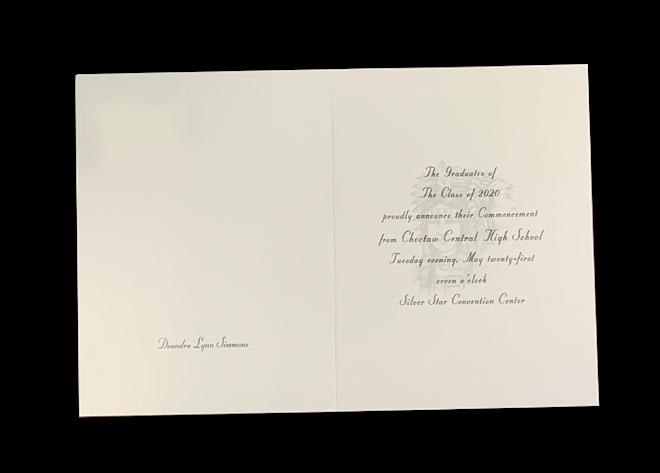 Deandra Lynn Simmons
The Graduates of
The Class of 2020
proudly announce their Commencement
from Choctaw Central High School
Tuesday evening, May twenty-first
seven o'clock
Silver Star Convention Center